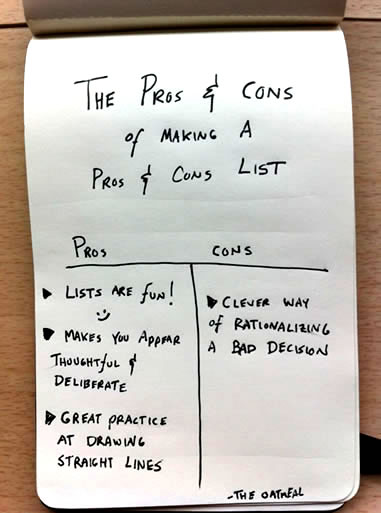 THE PROS & CONS
of MAKING A
PROS & CONS LIST
PROS
CONS
LISTS ARE fUN!
MAKES YOU APPEAR
THOUGHTfUL &
DELIBERATE
GREAT PRACTICE
AT DRAWING
STRAIGHT LINES
CLEVER WAY
of RATIONALIZING
A BAD DECISION
-THE OATMEAL